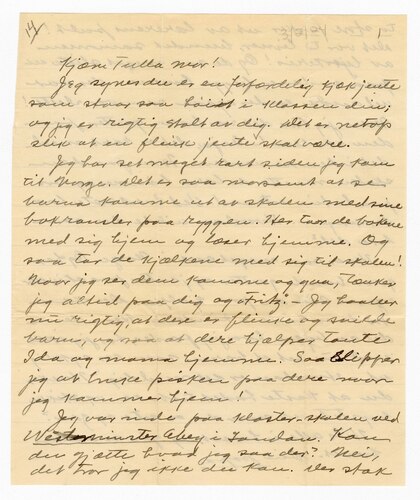 14
1
Kjære Tulla mor!
Jeg synes du er en forfærdelig kjæk jente
som staar saa høit i klassen din;
og jeg er rigtig stolt av dig. Det er netop
slik at en flink jente skal være.
Jeg har set meget rart siden jeg kom
til Norge. Det er saa morsomt at se
barna komme ut av skolen med sine
bokransler paa ryggen. Her tar de bøkene
med sig hjem og læser hjemme. Og
saa tar de kjælkene med sig til skolen!
Naar jeg ser dem komme og gaa, tænker
jeg altid paa dig og Fritz. Jeg haaber
nu rigtig, at dere er flinke og snilde
barn, og saa at dere hjælper tante
Ida og mama hjemme. Saa slipper
jeg at bruke pisken paa dere naar
jeg kommer hjem!
Jeg var inde paa kloster-skolen ved
Westminster Abey i London. Kan
du gjætte hvad jeg saa der? Nei,
det tror jeg ikke du kan. Der stak